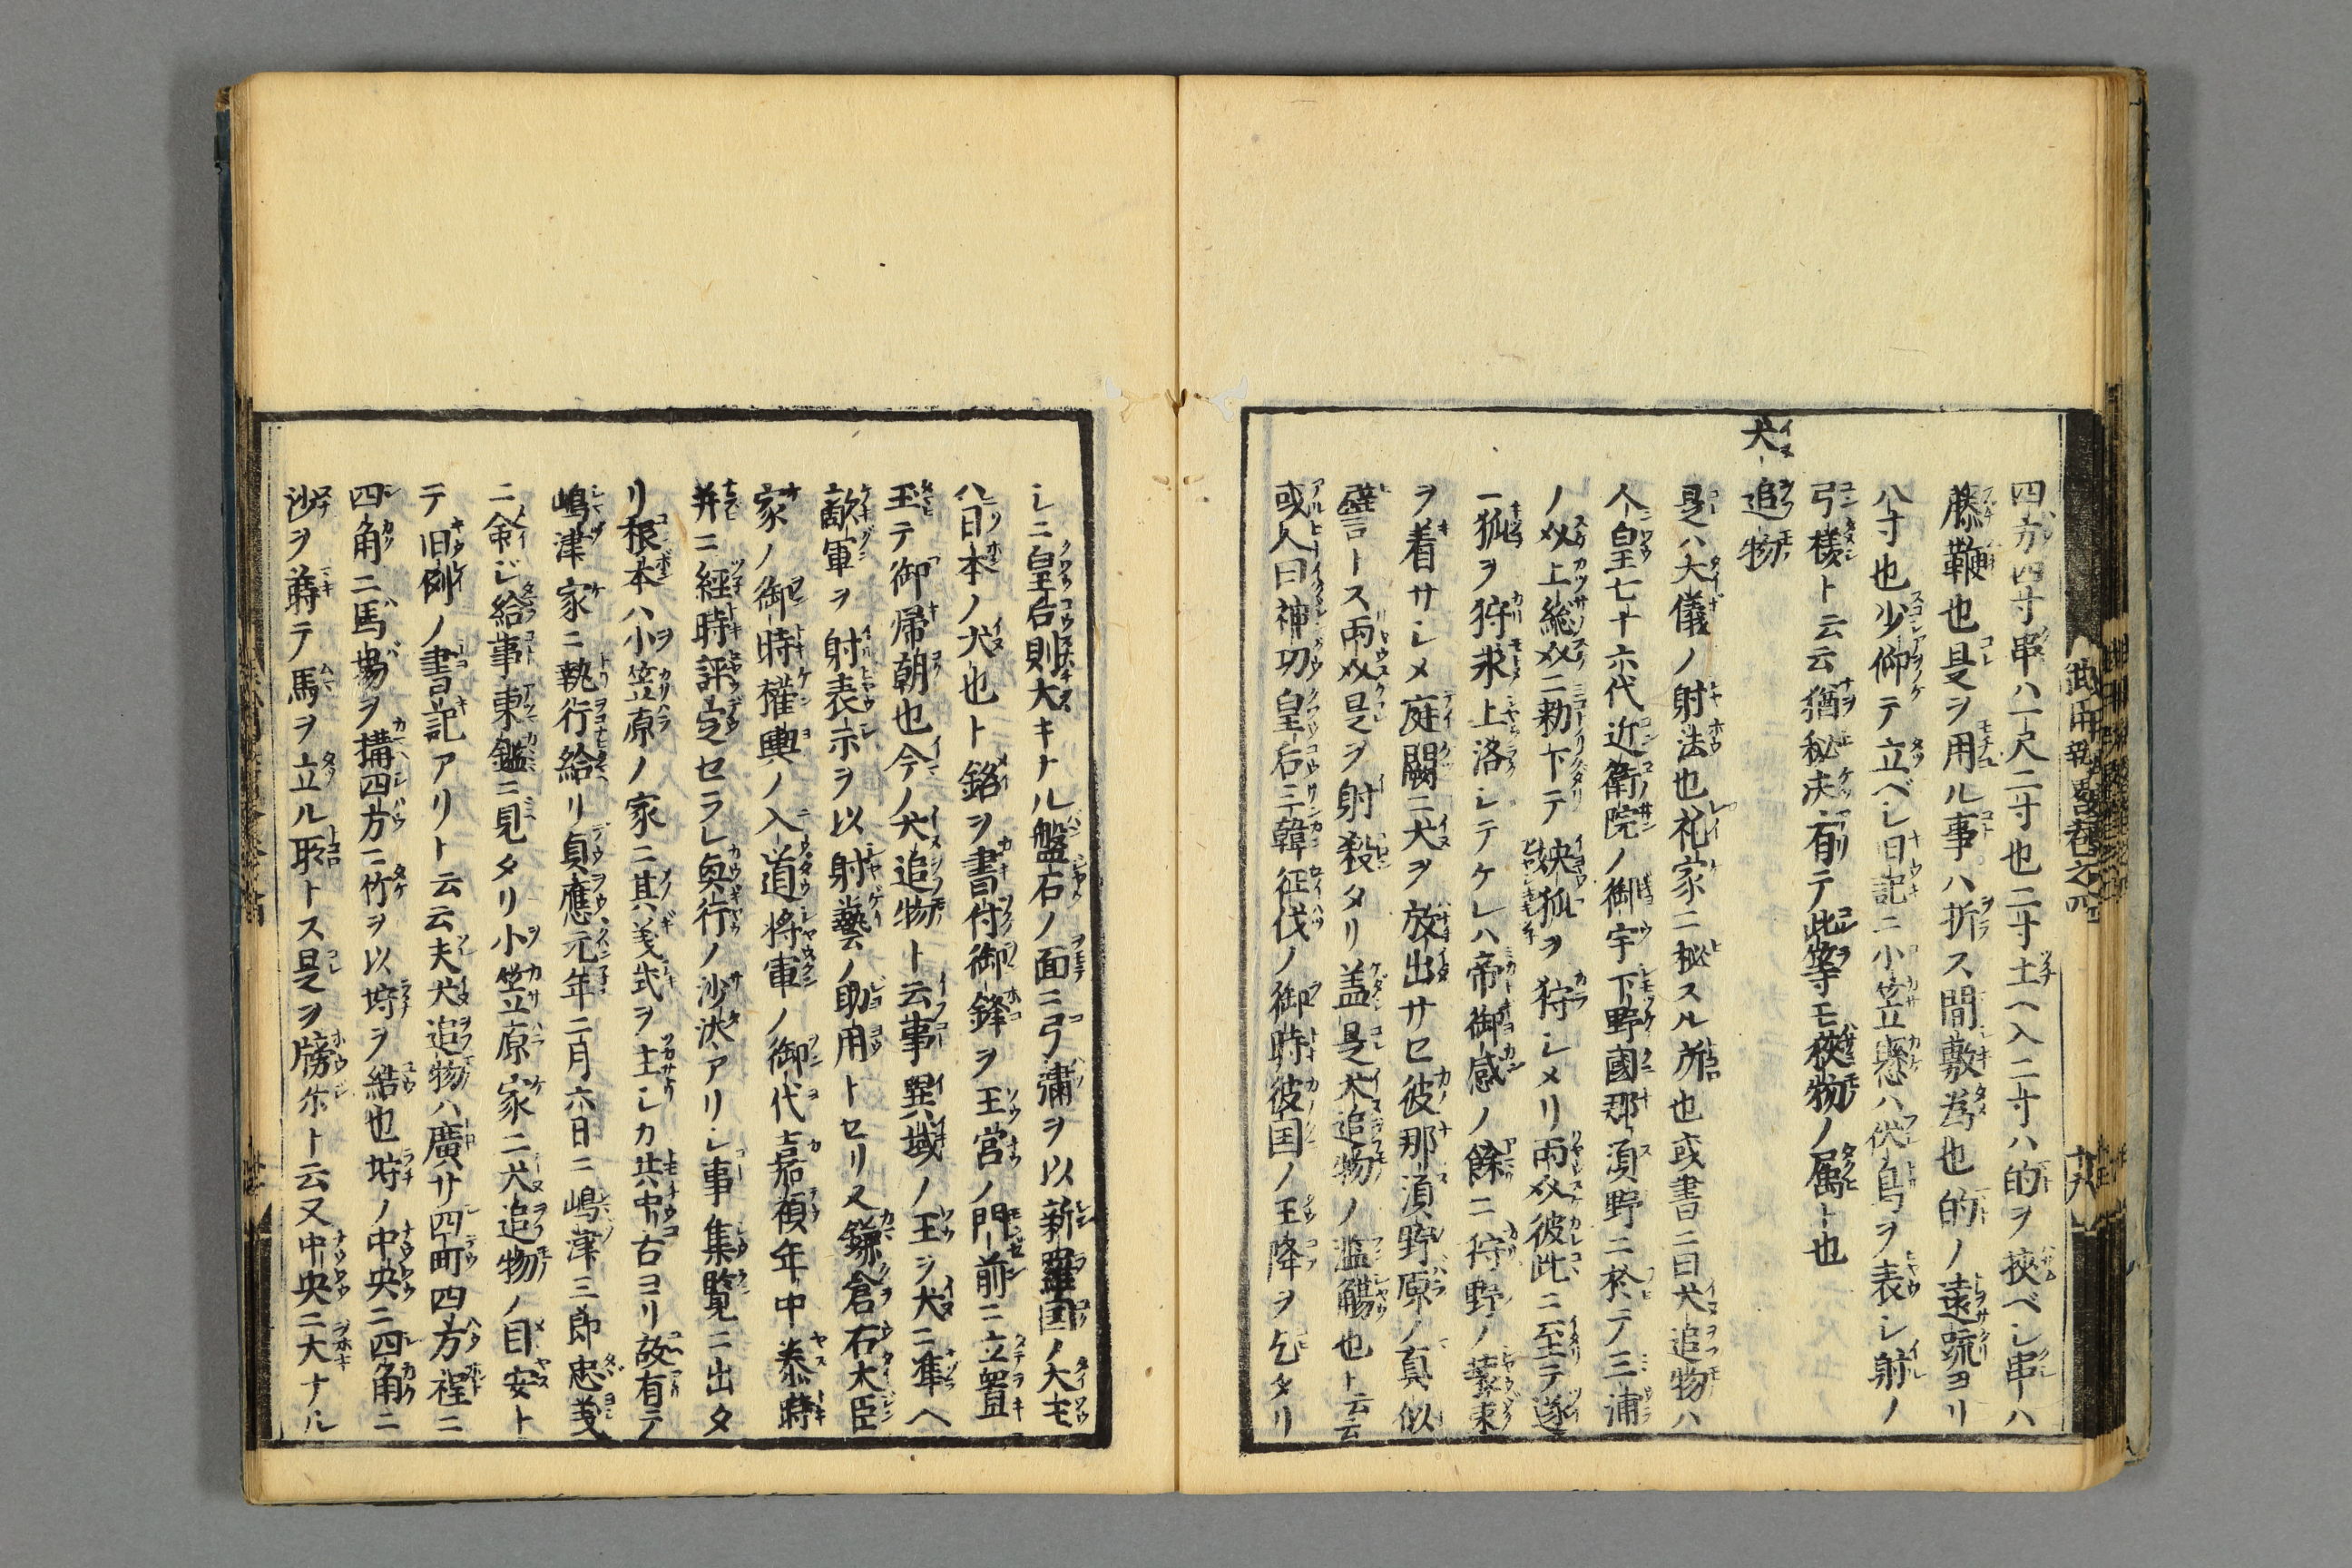 四方四寸串ハ一尺二寸也二寸土ヘ入二寸ハ的ヲ挾ベシ串ハ
藤鞭也是ヲ用ル事ハ折ス間敷為也的ノ遠疏ヨリ
八寸也少仰テ立ベシ旧記ニ小笠懸ハ伏鳥ヲ表シ射ノ
弓様ト云云猶秘决有テ此等モ挾物ノ属ト也
犬追物
是ハ大儀ノ射法也礼家ニ秘スル所也或書ニ曰犬追物ハ
人皇七十六代近衛院ノ御宇下野國那湏野ニ於テ三浦
ノ介上総介ニ勅下テ妖狐ヲ狩シメリ兩介彼此ニ至テ遂
一狐ヲ狩求上洛シテケレハ帝御感ノ餘ニ狩野ノ装束
ヲ着サシメ庭闕ニ犬ヲ放出サセ彼那湏野原ノ真似
譬トス兩介是ヲ射殺タリ盖是犬追物ノ濫觴也ト云云
或人曰神功皇后三韓征伐ノ御時彼国ノ王降ヲ乞タリ
シニ皇后則大キナル盤石ノ面ニ弓彇ヲ以新羅国ノ大王
ハ日本ノ犬也ト銘ヲ書付御鋒ヲ王宮ノ門前ニ立置
玉テ御帰朝也今ノ犬追物ト云事異域ノ王ヲ犬ニ准ヘ
敵軍ヲ射表示ヲ以射藝ノ助用トセリ又鎌倉右大臣
家ノ御時權輿ノ入道将軍ノ御代嘉禎年中泰時
并ニ經時評定セラレ興行ノ沙汰アリシ事集覧ニ出タ
リ根本ハ小笠原ノ家ニ其義式ヲ主シカ共中古ヨリ故有テ
嶋津家ニ執行給リ貞應元年二月六日ニ嶋津三郎忠義
ニ命ジ給事東鑑ニ見タリ小笠原家ニ犬追物ノ目安ト
テ旧例ノ書記アリト云云夫犬追物ハ廣サ四町四方程ニ
四角ニ馬場ヲ搆四方ニ竹ヲ以埒ヲ結也埒ノ中央ニ四角ニ
沙ヲ蒔テ馬ヲ立ル所トス是ヲ牓尓ト云又中央ニ大ナル